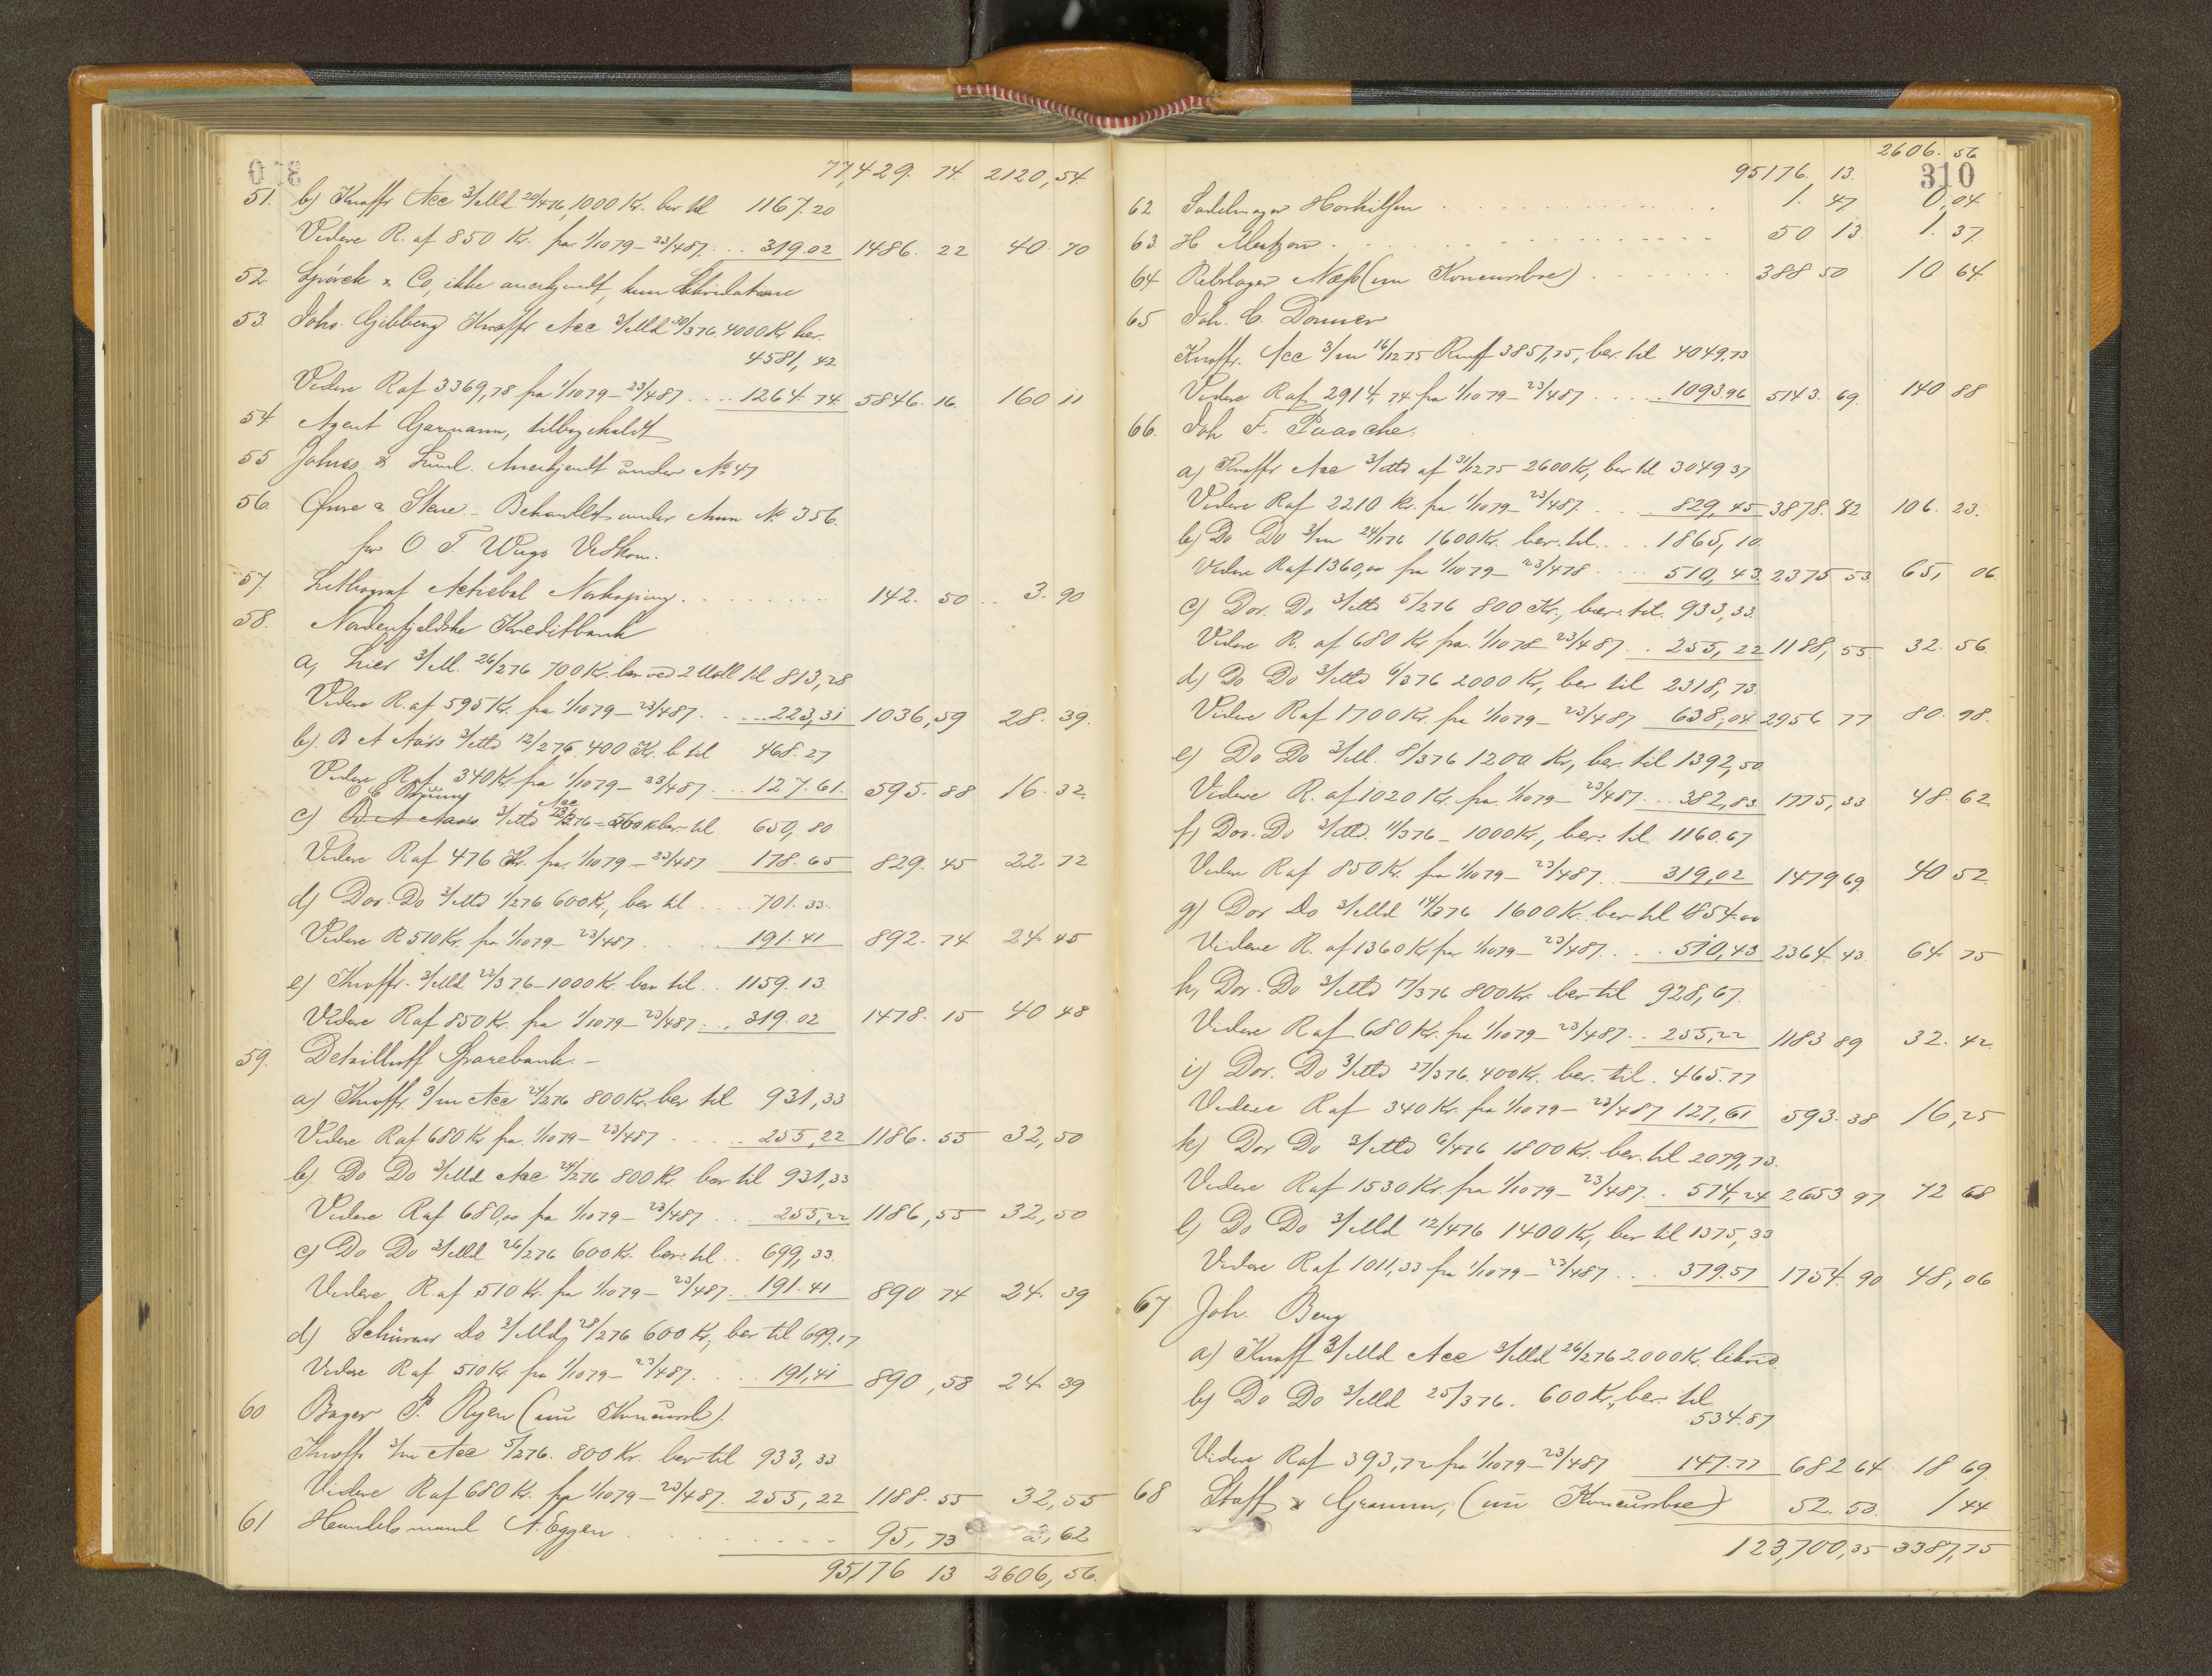 77,429. 74. 2120,54.
51. b) Knoffs Acc 3/Md 20/4 76, 1000 Kr. ber til 1167.20
Videre R. af 850 Kr. fra 1/10 79 - 23/4 87. ... 319.02 1486. 22 40. 70
52. & Co, ikke anerkjendt, kun
53. Johs. Gibberg Knoffs Acc 3/Md 30/3 76. 4000 Kr ber.
4581, 42
Videre R af 3369,78 fra 1/10 79 - 23/4 87 .... 1264. 74. 5846. 16. 160 11
54. Agent Garmann, tilbagekaldt
55 Johns. & Lund. Anerkjendt under No 47
56. & - Behandlet under Anm No. 356.
for O T. Wugs Vedkom.
57. Lithograf Actiebol Norkøping. ........ 142. 50 .. 3. 90
58. Nordenfjeldske Kreditbank
a, Lier 3/M. 26/2 76 700 Kr. ber ved 2 til 813,28
Videre R. af 595 Kr. fra 1/10 79 - 23/4 87. .... 223,31 1036,59 28. 39.
b). B A Aas's 3/Md 12/2 76. 400 Kr. b til 468.27
Videre R af 340 Kr. fra 1/10 79 - 23/4 87 ... 127.61. 595. 88 16. 32.
c) 3/Md Acc 560 Kr ber til 650, 80
Videre R af 476 Kr. fra 1/10 79 - 23/4 87 178.65 829. 45 22. 72
d) Dos. Do 3/Md 1/2 76 600 Kr., ber til .... 701. 33.
Videre R 510 Kr. fra 1/10 79 - 23/4 87. ... 191.41 892. 74 24. 45
e) Knoffs. 3/Md. 22/3 76 - 1000 Kr. ber til .. 1159. 13.
Videre R af 850 Kr. fra 1/10 79 - 23/4 87 ... 319. 02 1478. 15 40 48
59. Sparebank. -
a) Knoffs. 3/m Acc 24/2 76 800 Kr. ber til 931,33
Videre R af 680 Kr fra 1/10 79 - 23/4 87 ..... 255,22 1186. 55 32,50
b). Do Do 3/Md Acc 24/2 76 800 Kr ber til 931,33
Videre R af 680,00 fra 1/10 79 - 23/4 87 ... 255,22 1186,55 32,50
c) Do Do 3/Md 26/2 76 600 Kr. ber til .. 699, 33.
Videre R. af 510 Kr. fra 1/10 79 - 23/4 87. .. 191.41 890 74 24. 39
d) Do 3/Md, 28/2 76 600 Kr, ber til 699.17
Videre R af 510 Kr fra 1/10 79 - 23/4 87. ... 191,41 890,58 24 39
60 Bager P. Ryen (nu Konkursbo).
Knoffs 3/m Acc 5/2 76. 800 Kr. ber til 933, 33
Videre R af 680 Kr. fra 1/10 79 - 23/4 87. 255, 22 1188. 55 32,55
61 Handelsmand A. Eggen ........ 95, 73 2,62
95176 13 2606,56.
2606. 56
95176. 13.
310
62 Sadelmager ............ 1. 47 0,04
63. H ............ 50 13. 1. 37.
64 Rebslager Næss (nu Koncursbo). ....... 388 50 10 64.
65 Joh. C. Donner
Knoffs. Acc 3/m 16/12 75 3857,75, ber. til 4049.73
Videre R af 2914,74 fra 1/10 79 - 23/4 87 ..... 1093.96 5143. 69. 140 88
66. Joh F. Paasche.
a) Knoffs Acc 3/Md af 31/12 75 2600 Kr, ber til 3049 37
Videre R af 2210 Kr. fra 1/10 79 - 23/4 87. ... 829,45 3878. 82 106. 23.
b) Do Do 3/m 24/1 76 1600 Kr. ber. til .... 1865, 10.
Videre R af 1360,00 fra 1/10 79 - 23/4 78 .... 510,43. 2375 53. 65, 06.
c) Dos. Do 3/Md 5/2 76 800 Kr, ber. til. 933,33.
Videre R. af 680 Kr fra. 1/10 78 23/4 87. .. 255, 22 1188, 55. 32. 56.
d) Do Do 3/Md 6/3 76 2000 Kr, ber til 2318, 73.
Videre R af 1700 Kr. fra 1/10 79 - 23/4 87 638,04 2956 77 80. 98.
e) Do Do 3/M. 8/3 76 1200 Kr, ber. til 1392,50
Videre R. af 1020 Kr. fra 1/10 79 - 23/4 87. .. 382,83. 1775,33 48. 62
f) Dos. Do 3/Md. 11/3 76 - 1000 Kr., ber. til 1160.67
Videre R af 850 Kr. fra 1/10 79 - 23/4 87. ... 319,02 1479 69. 40 52.
g) Dos Do 3/Md 14/3 76 1600 Kr. ber til 1854.00
Videre R. af 1360 Kr fra 1/10 79 - 23/4 87. ... 510,43 2364. 43. 64. 75
h, Dos. Do 3/Md 17/3 76 800 Kr. ber til 928,67.
Videre R af 680 Kr. fra 1/10 79 - 23/4 87. .. 255,22 1183 89 32. 42.
i) Dos. Do 3/Md 27/3 76. 400 Kr. ber. til. 465.77
Videre R af 340 Kr. fra 1/10 79 - 23/4 87 127,61 593. 38 16,25
k) Dos Do 3/Md 6/4 76 1800 Kr. ber. til 2079,73.
Videre R af 1530 Kr. fra 1/10 79 - 23/4 87. .. 574,24 2653 97. 72 68
l) Do Do 3/Md 12/4 76 1400 Kr, ber til 1375,33
Videre R af 1011,33 fra 1/10 79 - 23/4 87 ... 379.57 1754. 90 48,06
67 Joh. Berg
a) Knoff 3/Md Acc 3/Md 26/2 76 2000 Kr.
b) Do Do 3/Md 25/3 76. 600 Kr., ber. til
534.87
Videre R af 393,72 fra 1/10 79 - 23/4 87 147.77 682 64 18 69.
68 & Gramm, (nu Koncursbo) 52. 53. 1 44
123,700,35 3387,75